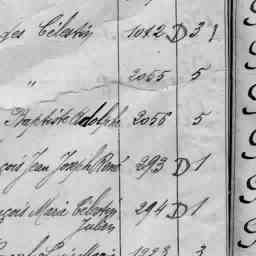 des Célestin 1042 D 31
" 2055 5
Baptiste Adolphe 2056 5
çois Jean Joseph René 293 D 1
nçois Marie Célestin 294 D 1
Julien
1923 3